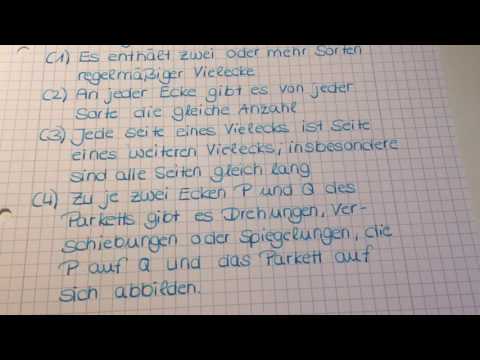 (1) Es enthält zwei oder mehr Sorten
regelmäßiger Vielecke
(2) An jeder Ecke gibt es von jeder
Sorte die gleiche Anzahl
(3) Jede Seite eines Vielecks ist Seite
eines weiteren Vielecks, insbesondere
sind alle Seiten gleich lang
(4) Zu je zwei Ecken P und Q des
Parketts gibt es Drehungen, Ver-
schiebungen oder Spiegelungen, die
P auf Q und das Parkett auf
sich abbilden.